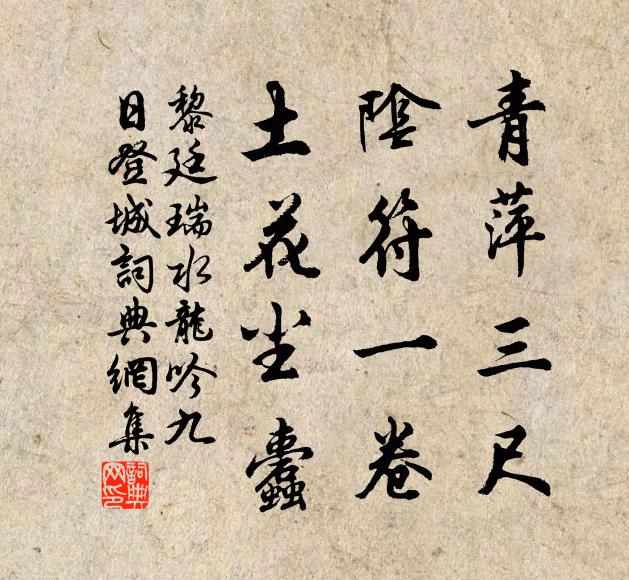 青萍三尺
陰符一卷
土花尘蠹
黎廷瑞水龍吟九
日登城詞典網集
詞典网印